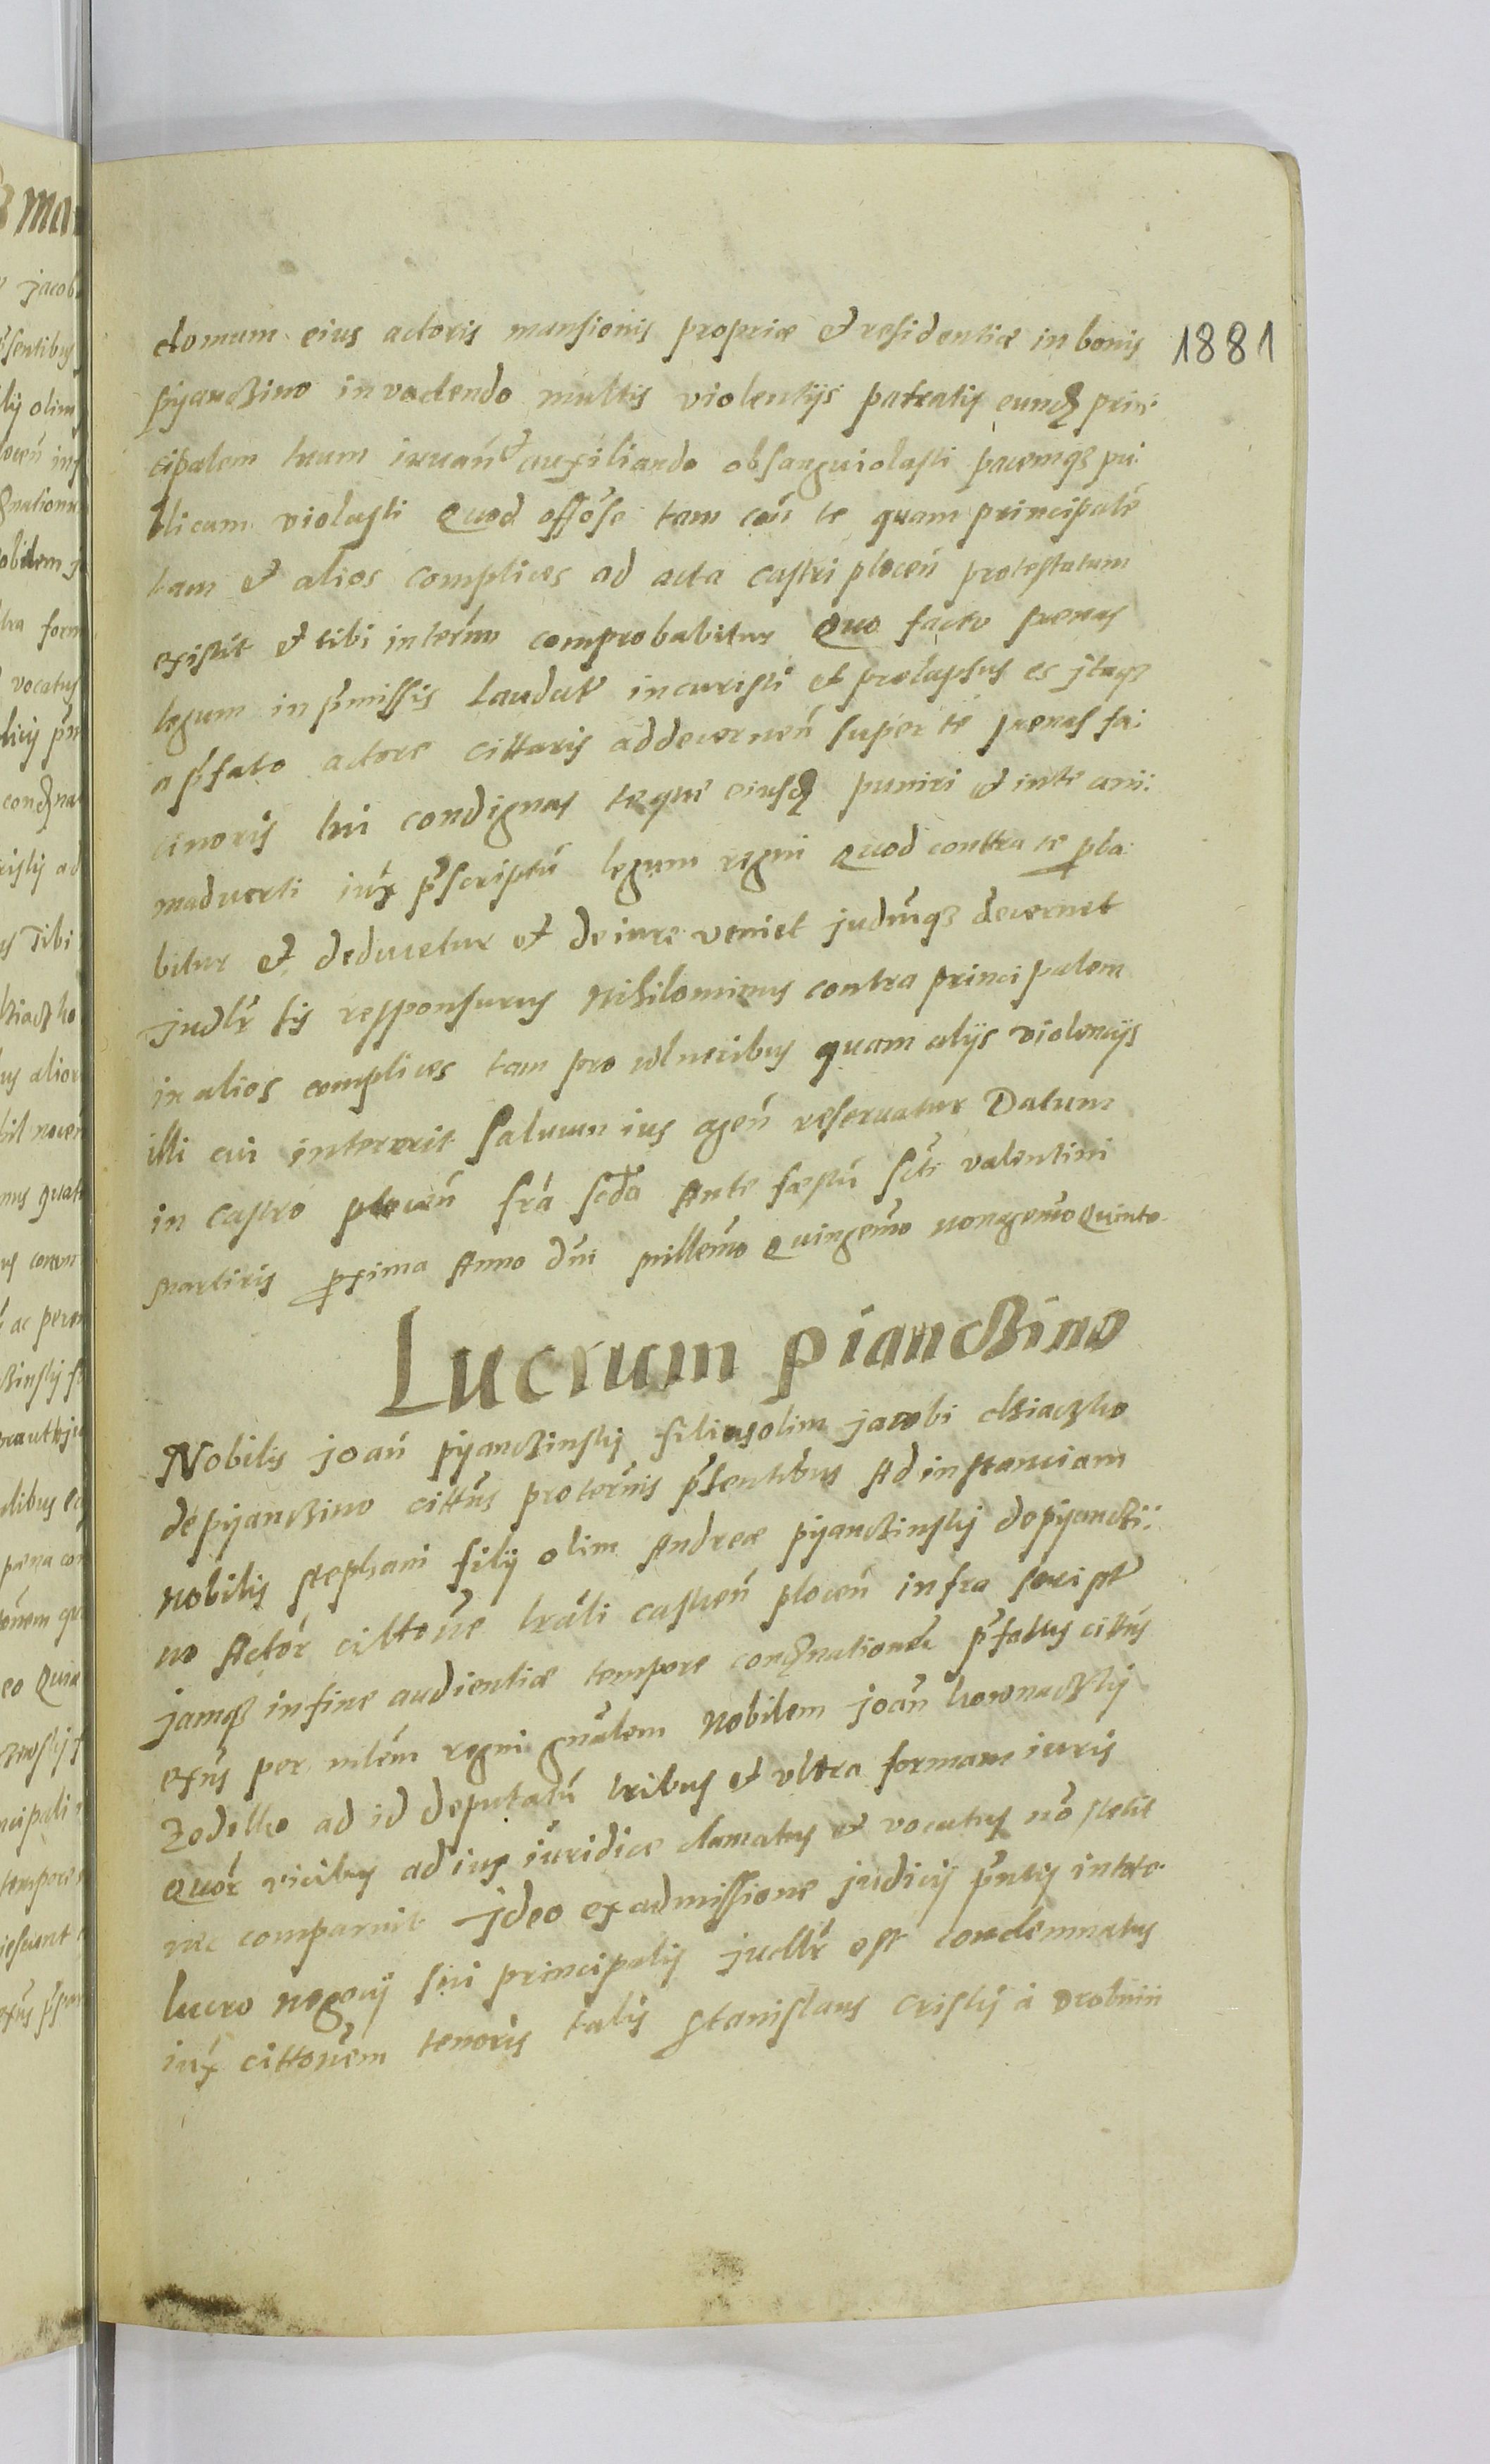 1881
domum eius actoris mansionis propriæ et residentiæ in bonis
pyanczino invadendo multis violentijs patratis eundē prin:
cipalem tuum iuuan̄ et auxiliando obsanguiolasti pacemq3 pu:
blicam violasti Quod offōse tam con̄ te quam principalē
tam et alios complices ad acta castri plocen̄ protestatum
existit et tibi in ter̄no comprobabitur Quo facto poenas
legum in p̄missis laudat̄ incuristi et prolapsus es jtaq3
a p̄fato actore cittaris ad decernen̄ super te poenas fa:
cinoris tui condignas teque eiusdē puniri et in te ani:
maduerti iux̄ p̄scriptū legum regni Quod contra te p̱ba
bitur et deducetur et de iure veniet judm̄q3 decernet
judlr̄ tis responsurus Nihilominus contra principalem
in alios complices tam pro wlneribus quam alijs violencijs
illi cui intererit saluum ius agen̄ reseruatur Datum
in Castro plocen̄ fr̄a scd̄a Ante fæstū Scti valentini
Martiris p̱xima Anno dn̄i millem̄o Quingem̄o nonagem̄o Quinto
Lucrum pianczino
Nobilis joan̄ pyanczinsky filius olim jacobi dziaczko
de pyanczino cittūs pro ter̄nis p̄sentibus Ad instanciam
nobilis stephani filij olim Andreæ pyanczinskij de pyanczi:
no Actōr cittōne tr̄ali castren̄ plocen̄ infra script̄
jamq3 in fine audientiæ tempore condēnationū p̄fattus cittūs
exn̄s per mlēm regni gn̄alem Nobilem joan̄ kownaczky
ad id deputatū tribus et vltra formam iuris
Quōr vicibus ad iux̄ iuridice clamatus et vocatus nō stetit
nec comparuit Jdeo ex admissione judicij p̄ntis in toto
lucro negocij sui principalis judlr̄ est condemnatus
iux̄ cittōnem tenoris talis Stanislaus Crisky à Drobnin